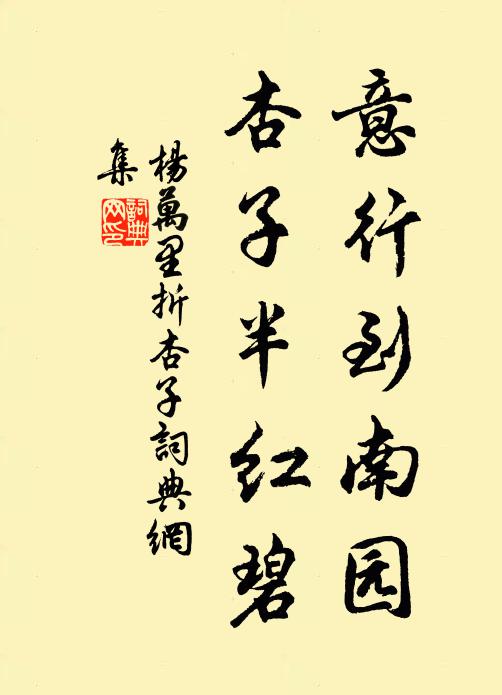 意行到南园
杏子半红碧
楊萬里折杏子詞典網
集
詞典
网印